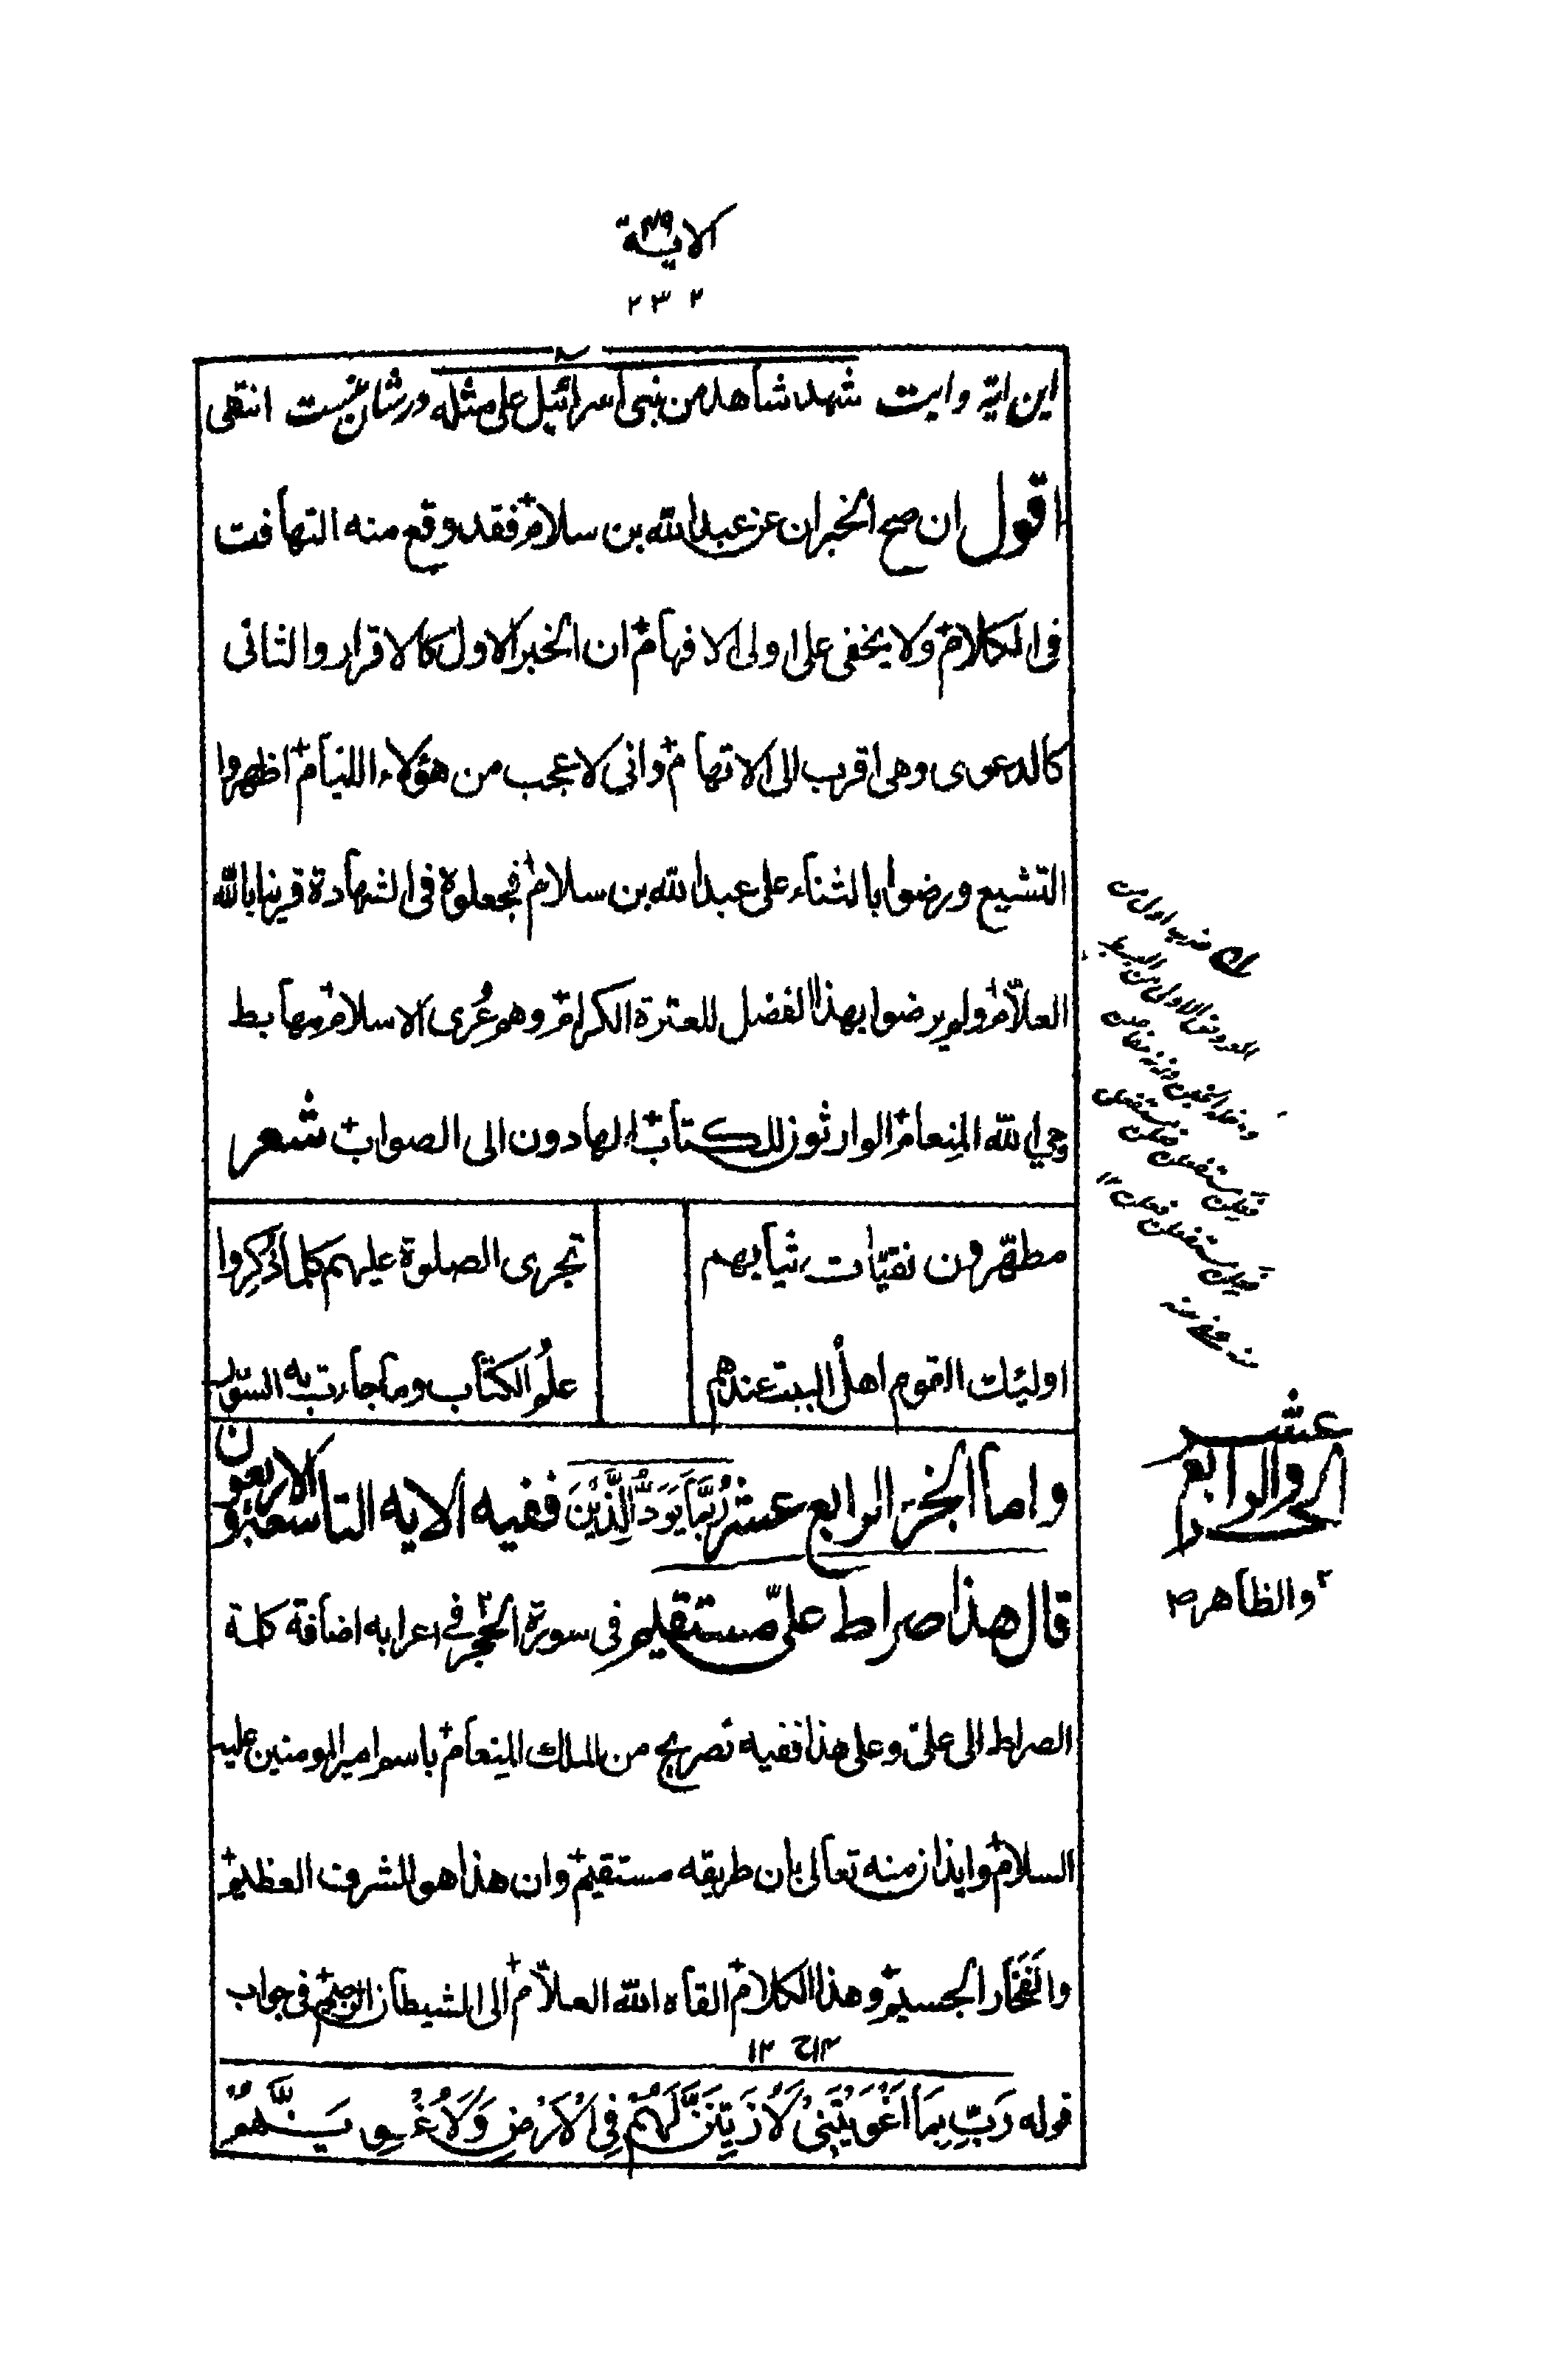 الاية ٣٩
٢٣٢
اين اية وايت شهد شاهد من بنى اسرائيل على مثله در شان نيست انتهى
اقول ان صح الخبران عن عبد الله بن سلام فقد وقع منه التهافت
فى الكلام ولا يخفى على اولى الافهام ان الخبر الاول كالاقرار والثانى
كالدعوى وهى اقرب الى الاتهام وانى لاعجب من هؤلاء اللئام اظهروا
التشيع ورضوا بالثناء على عبد الله بن سلام فجعلوه فى الشهادة قرينا بالله
العلّام ولم يرضوا بهذا الفضل للعترة الكرام وهم عُرى الاسلام مهابط
وحي الله المنعام الوارثون للكتاب الهادون الى الصواب شعر
مطهّرون نقيّات ثيابهم تجرى الصلوة عليهم كلما ذُكِروا
اولئك القوم اهلُ البيت عندهم علمُ الكتاب وما جاءت به السّور
واما الجزء الرابع عشر رُبَمَا يَوَدُّ الَّذِيْنَ ففيه الاية التاسعة والاربعون
قال هذا صراط علىّ مستقيم فى سورة الحجر فى اعرابه اضافة كلمة
الصراط الى علىّ وعلى هذا ففيه تصريح من الملك المنعام باسم امير المومنين عليه
السلام وايذان منه تعالى بان طريقه مستقيم وان هذا هو الشرف العظيم
والفخار الجسيم وهذا الكلام القاه الله العلّام الى الشيطان الرجيم فى جواب
قوله رَبِّ بِمَا اَغْوَيْتَنِىْ لَاُزَيِّنَنَّ لَهُمْ فِى الْاَرْضِ وَلَاُغْوِيَنَّهُمْ
الجزء الرابع
عشر
والظاهر